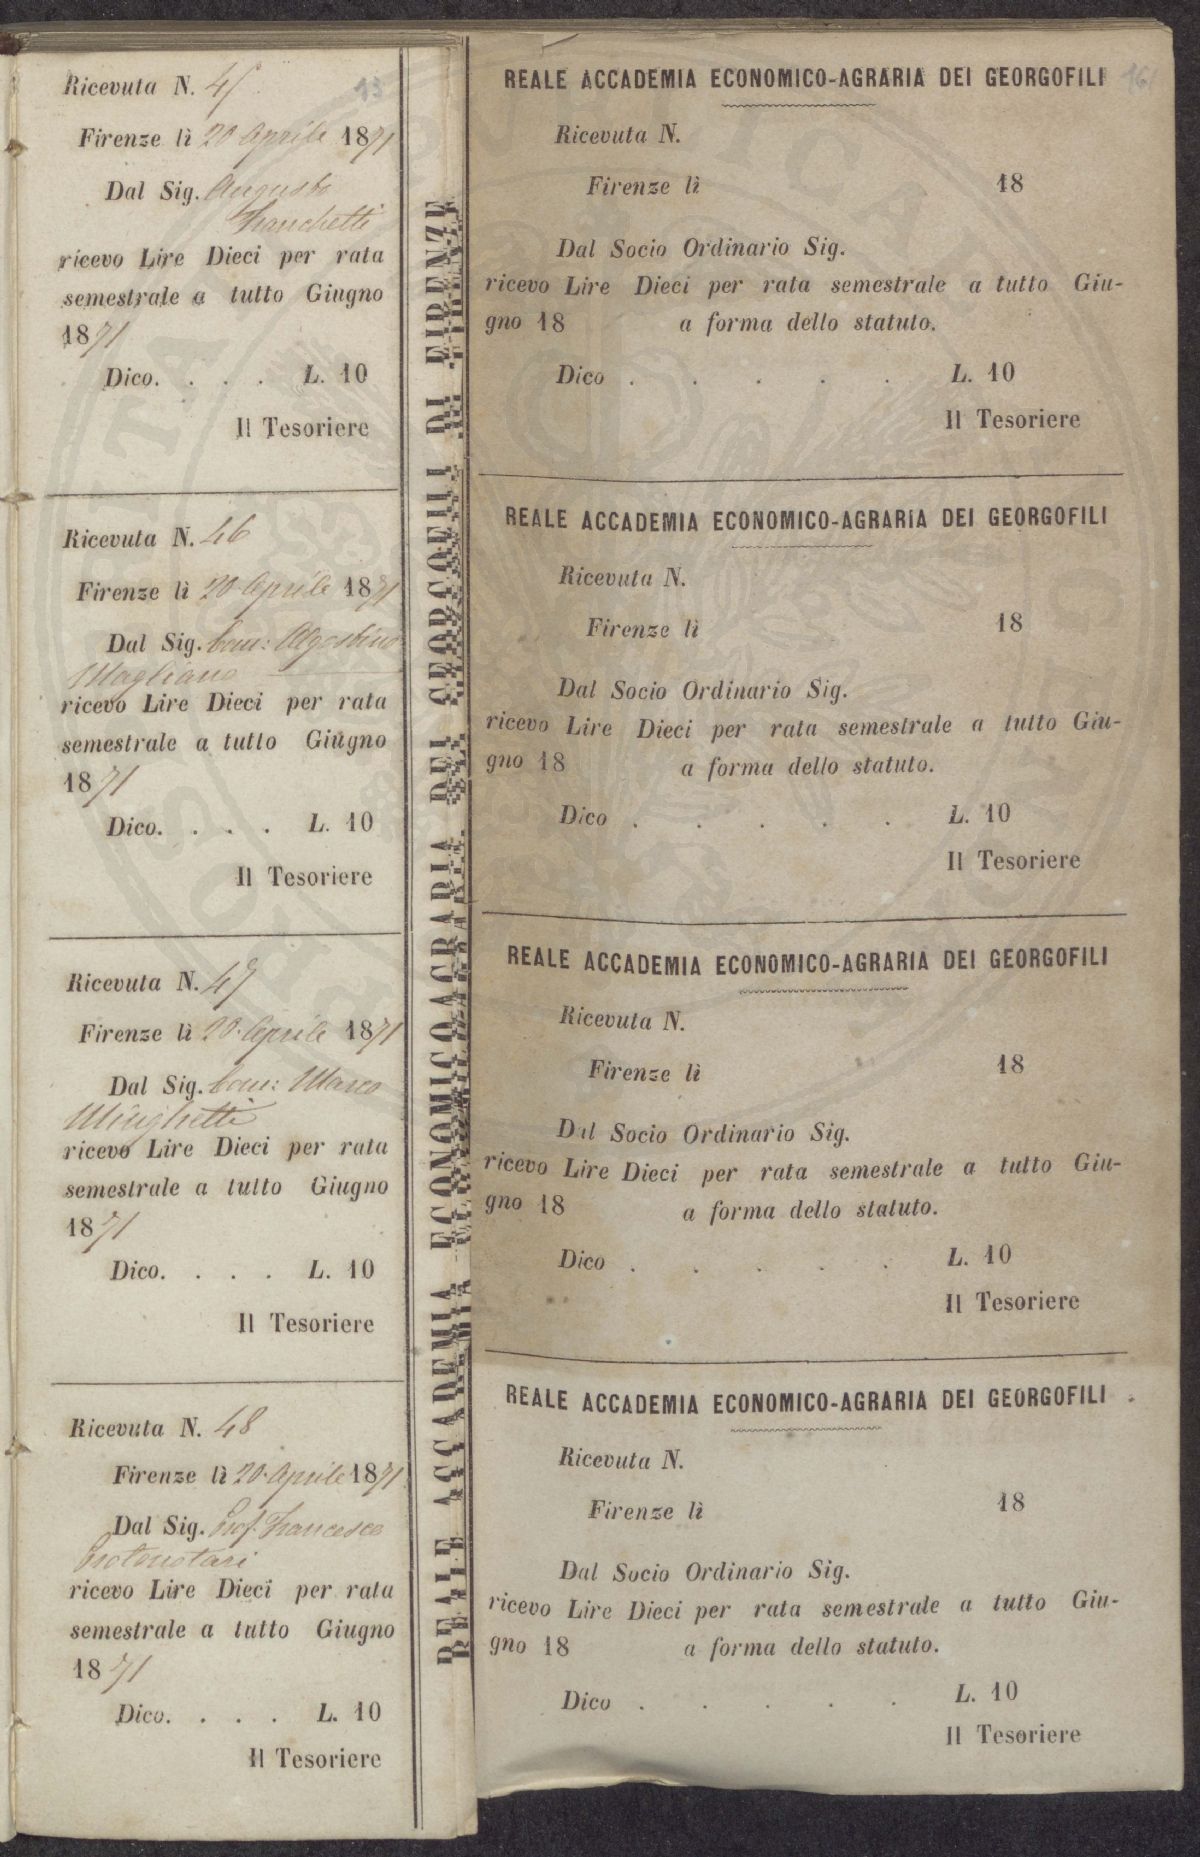 Ricevuta N. 45
13
Firenze lì 20 Aprile 1871
Dal Sig. Augusto
Franchetti
ricevo Lire Dieci per rata
semestrale a tutto Giugno
1871
Dico. . . . L. 10
Il Tesoriere
Ricevuta N. 46
Firenze lì 20 Aprile 1871
Dal Sig. Com: Agostino
Magliano
ricevo Lire Dieci per rata
semestrale a tutto Giugno
1871
Dico. . . . L. 10
Il Tesoriere
Ricevuta N. 47
Firenze lì 20 Aprile 1871
Dal Sig. Com: Marco
Minghetti
ricevo Lire Dieci per rata
semestrale a tutto Giugno
1871
Dico. . . . L. 10
Il Tesoriere
Ricevuta N. 48
Firenze lì 20 Aprile 1871
Dal Sig. Prof. Francesco
Protonotari
ricevo Lire Dieci per rata
semestrale a tutto Giugno
1871
Dico. . . . L. 10
Il Tesoriere
REALE ACCADEMIA ECONOMICOAGRARIA DEI GEORGOFILI DI FIRENZE
REALE ACCADEMIA ECONOMICO-AGRARIA DEI GEORGOFILI
Ricevuta N.
Firenze lì 18
Dal Socio Ordinario Sig.
ricevo Lire Dieci per rata semestrale a tutto Giu-
gno 18 a forma dello statuto.
Dico . . . . . L. 10
Il Tesoriere
REALE ACCADEMIA ECONOMICO-AGRARIA DEI GEORGOFILI
Ricevuta N.
Firenze lì 18
Dal Socio Ordinario Sig.
ricevo Lire Dieci per rata semestrale a tutto Giu-
gno 18 a forma dello statuto.
Dico . . . . . L. 10
Il Tesoriere
REALE ACCADEMIA ECONOMICO-AGRARIA DEI GEORGOFILI
Ricevuta N.
Firenze lì 18
Dal Socio Ordinario Sig.
ricevo Lire Dieci per rata semestrale a tutto Giu-
gno 18 a forma dello statuto.
Dico . . . . . L. 10
Il Tesoriere
REALE ACCADEMIA ECONOMICO-AGRARIA DEI GEORGOFILI
Ricevuta N.
Firenze lì 18
Dal Socio Ordinario Sig.
ricevo Lire Dieci per rata semestrale a tutto Giu-
gno 18 a forma dello statuto.
Dico . . . . . L. 10
Il Tesoriere